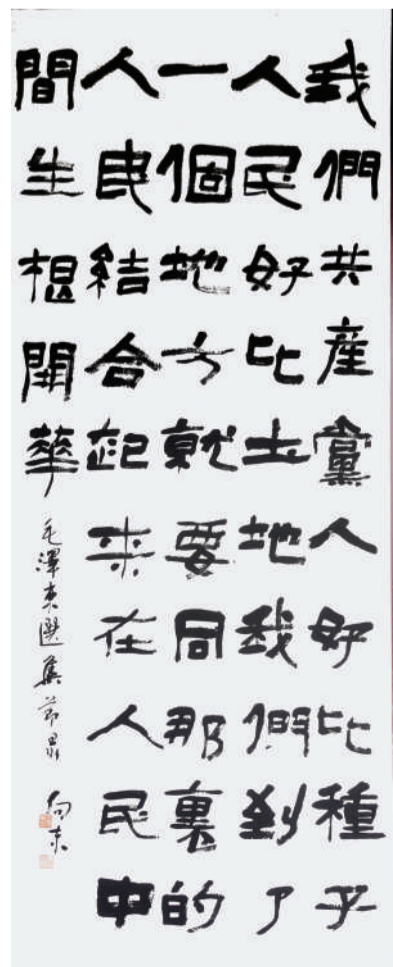 我們共産黨人好比種子
人民好比土地我們到了
一個地方就要同那裏的
人民結合起来在人民中
間生根開華
毛澤東選集節录
向东